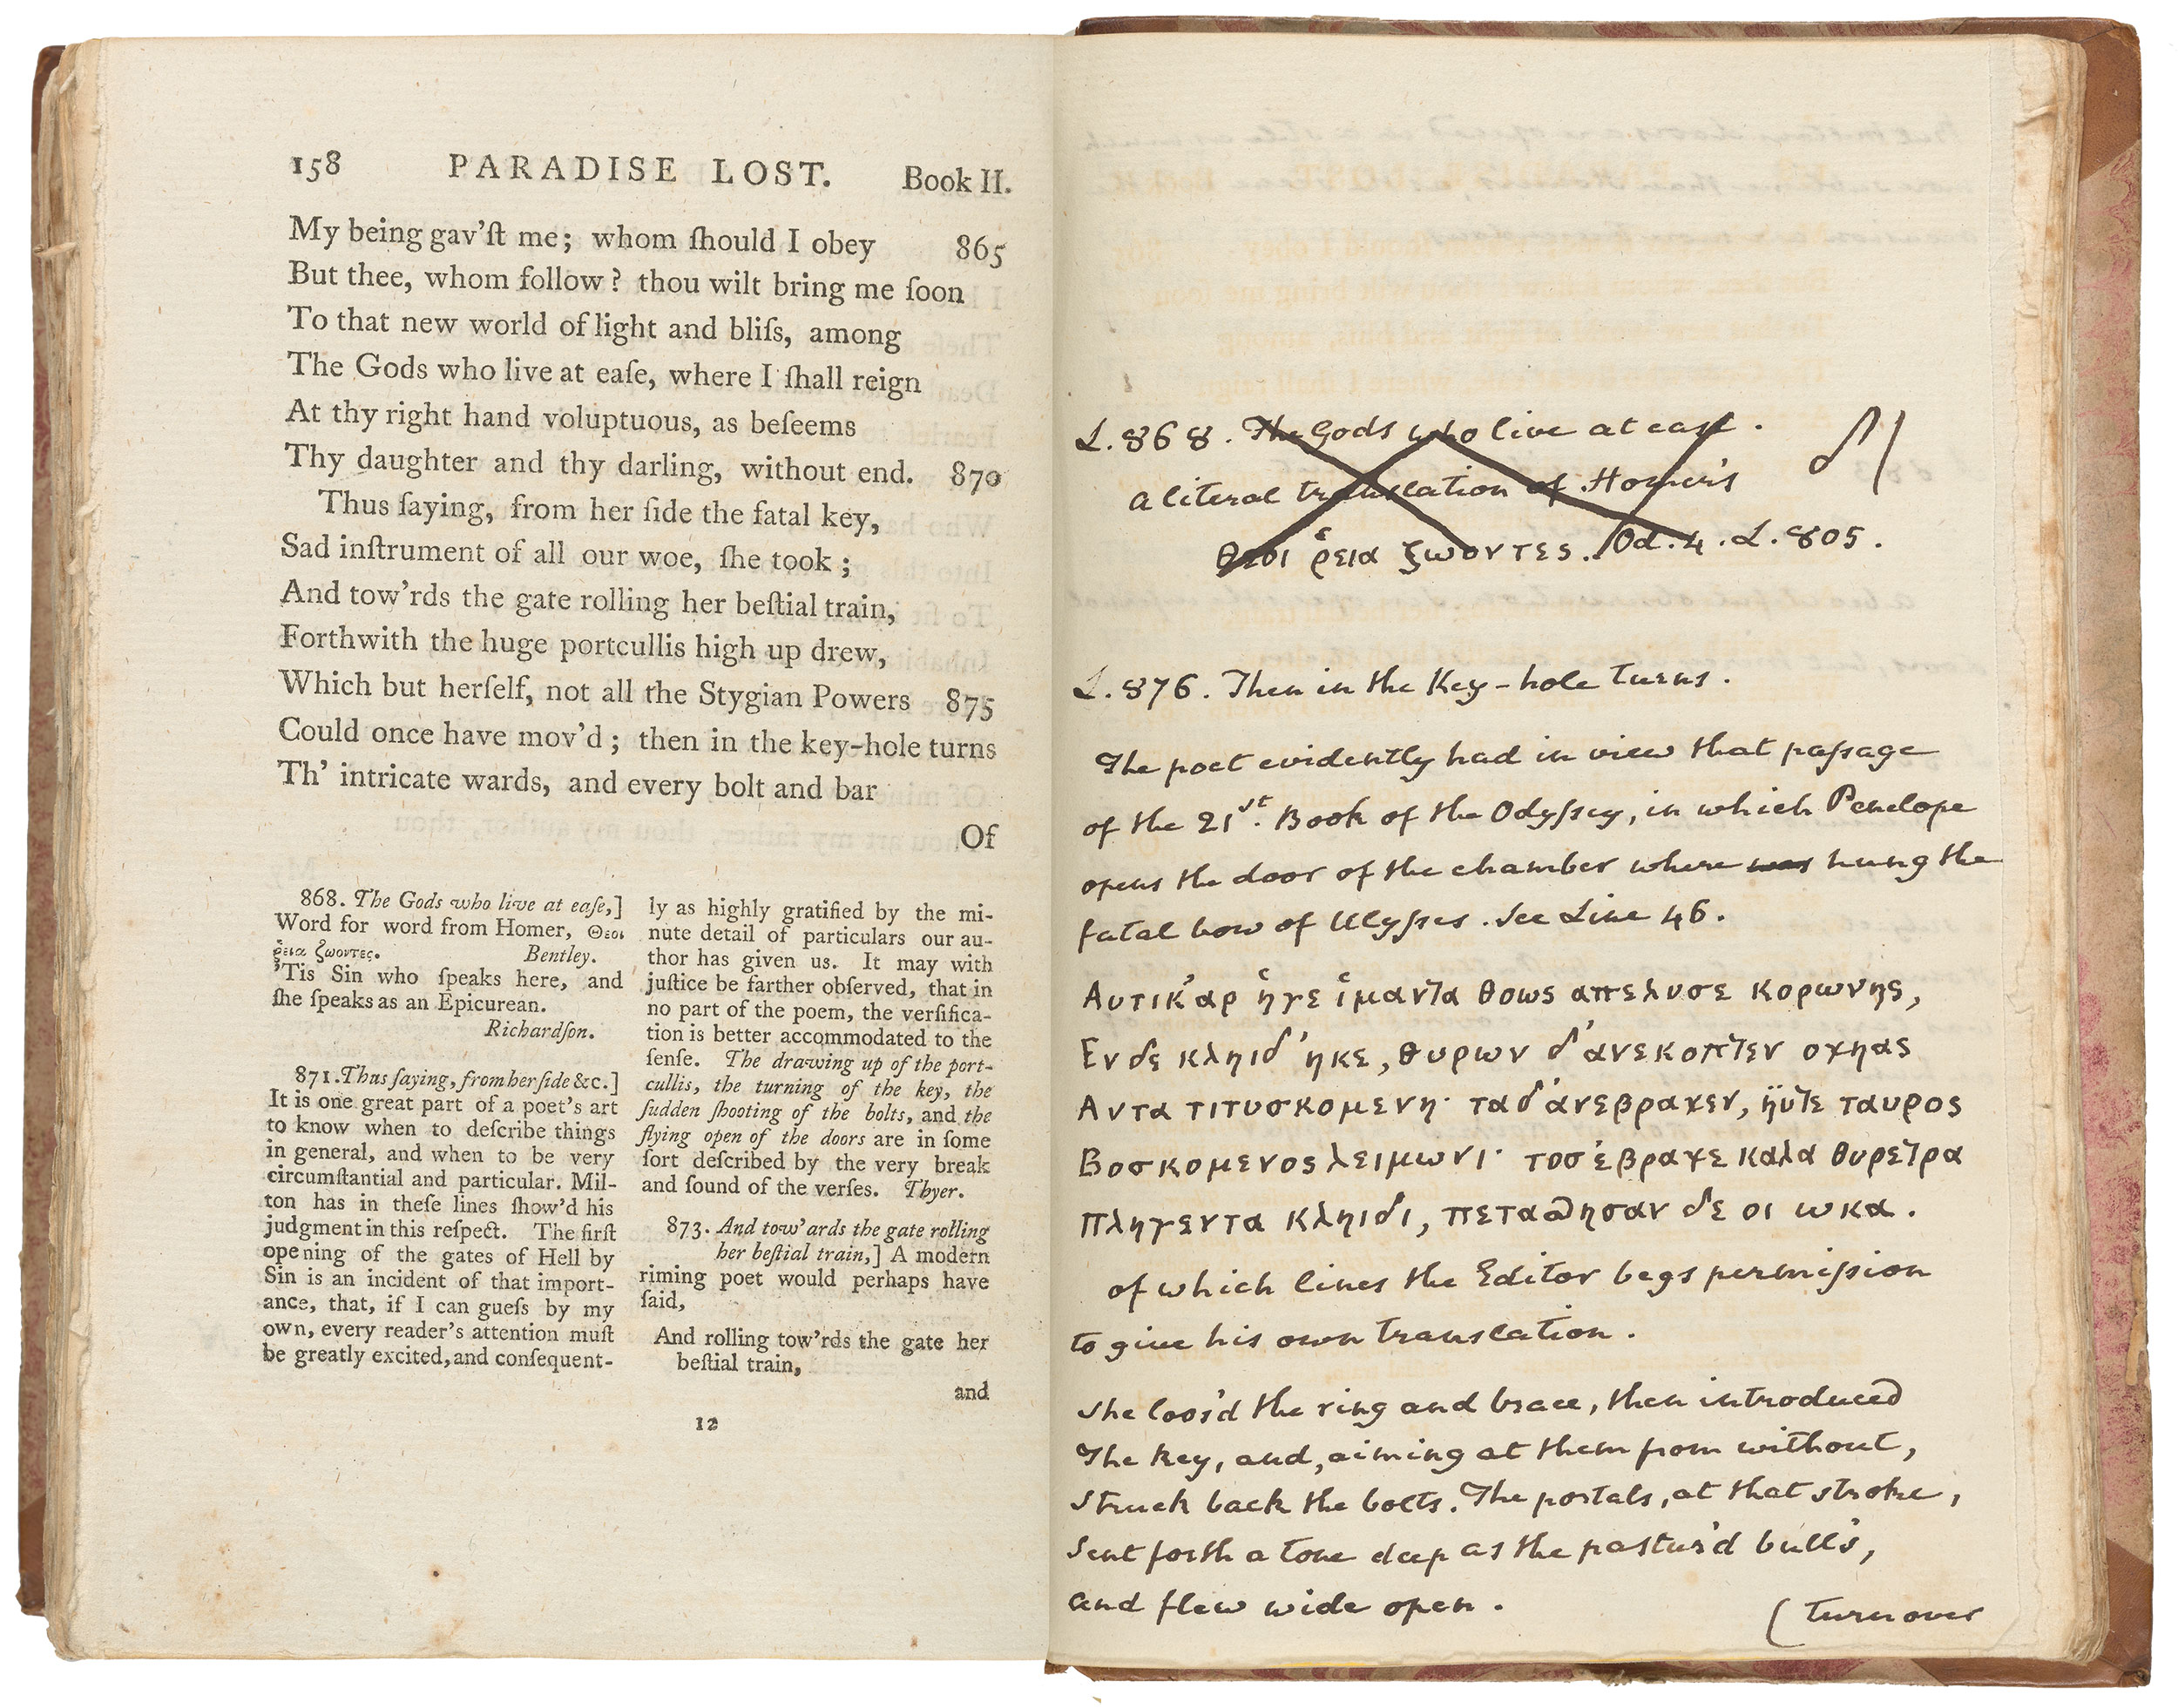 158 PARADISE LOST. Book II.
My being gav'ſt me; whom ſhould I obey 865
But thee, whom follow? thou wilt bring me ſoon
To that new world of light and bliſs, among
The Gods who live at eaſe, where I ſhall reign
At thy right hand voluptuous, as beſeems
Thy daughter and thy darling, without end. 870
Thus ſaying, from her ſide the fatal key,
Sad inſtrument of all our woe, ſhe took;
And tow'rds the gate rolling her beſtial train,
Forthwith the huge portcullis high up drew,
Which but herſelf, not all the Stygian Powers 875
Could once have mov'd; then in the key-hole turns
Th' intricate wards, and every bolt and bar
Of
868. The Gods who live at eaſe,]
Word for word from Homer, Θεοι
ῥεια ζωοντες. Bentley.
'Tis Sin who ſpeaks here, and
ſhe ſpeaks as an Epicurean.
Richardſon.
871. Thus ſaying, from her ſide &c.]
It is one great part of a poet's art
to know when to deſcribe things
in general, and when to be very
circumſtantial and particular. Mil-
ton has in theſe lines ſhow'd his
judgment in this reſpect. The firſt
opening of the gates of Hell by
Sin is an incident of that import-
ance, that, if I can gueſs by my
own, every reader's attention muſt
be greatly excited, and conſequent-
ly as highly gratified by the mi-
nute detail of particulars our au-
thor has given us. It may with
juſtice be farther obſerved, that in
no part of the poem, the verſifica-
tion is better accommodated to the
ſenſe. The drawing up of the port-
cullis, the turning of the key, the
ſudden ſhooting of the bolts, and the
flying open of the doors are in ſome
ſort deſcribed by the very break
and ſound of the verſes. Thyer.
873. And tow'ards the gate rolling
her beſtial train,] A modern
riming poet would perhaps have
ſaid,
And rolling tow'rds the gate her
beſtial train,
and
12
L. 868. The Gods who live at ease.
a literal translation of Homer's
θεοι ῥεια ζωοντες. Od. 4. L. 805.
L. 876. Then in the Key-hole turns.
The poet evidently had in view that paſsage
of the 21st. Book of the Odyſsey, in which Penelope
opens the door of the chamber where was hung the
fatal bow of Ulyſses. See Line 46.
Αυτικ' αρ ἡγε ἱμαντα θοως απελυσε κορωνης,
Εν δε κληιδ' ηκε, θυρων δ' ανεκοπτεν οχηας
Αντα τιτυσκομενη· τα δ' ανεβραχεν, ηϋτε ταυρος
Βοσκομενος λειμωνι· τοσ' εβραχε καλα θυρετρα
Πληγεντα κληιδι, πετασθησαν δε οι ωκα.
of which lines the Editor begs permiſsion
to give his own translation.
She loos'd the ring and brace, then introduced
The key, and, aiming at them from without,
Struck back the bolts. The portals, at that stroke,
Sent forth a tone deep as the pastur'd bull's,
and flew wide open.
(Turn over